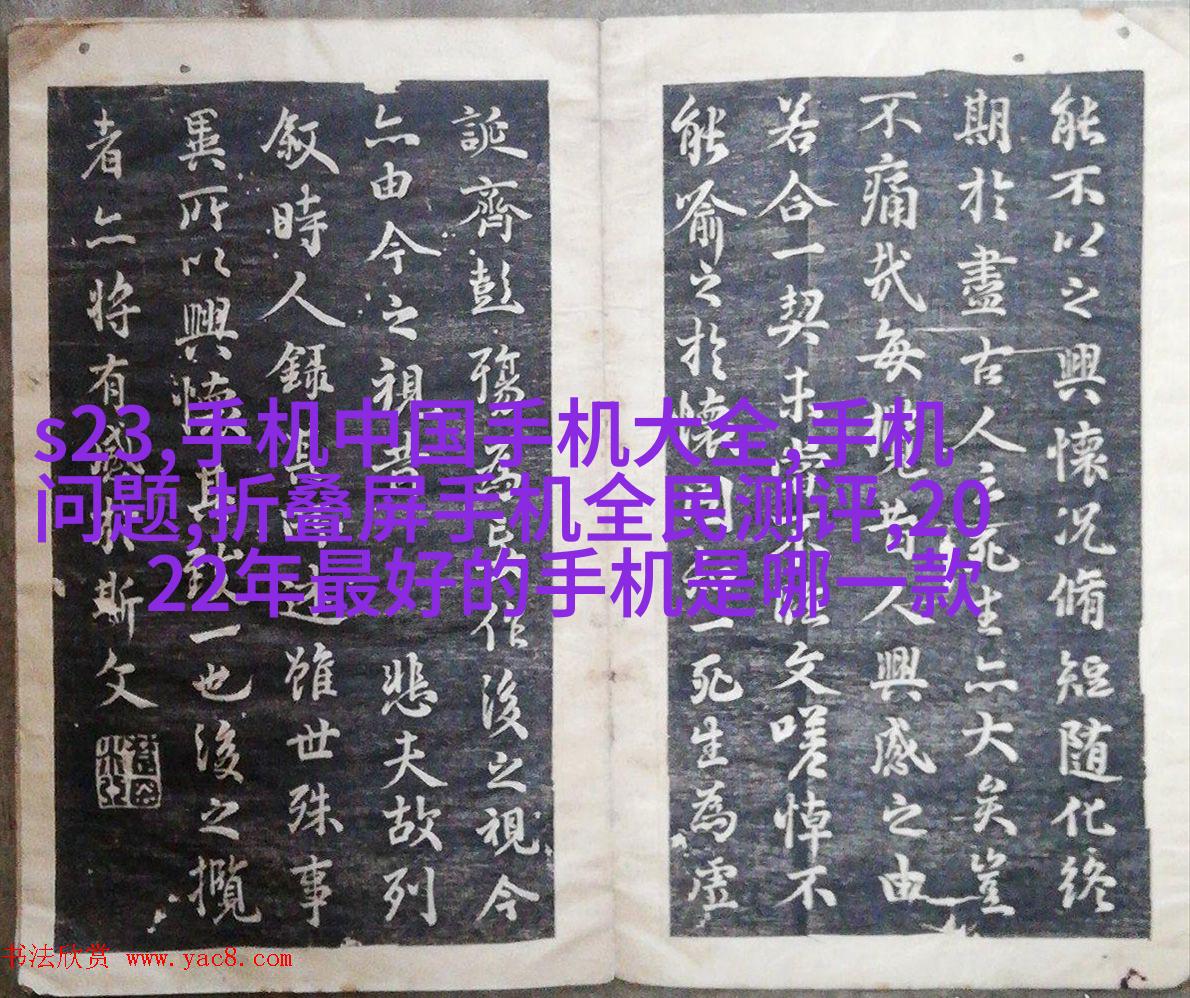 能不以之興懷況脩短随化終
期於盡古人云死生亦大矣豈
不痛哉每攬昔人興感之由
若合一契未嘗不臨文嗟悼不
能喻之於懷固知一死生為虛
誕齊彭殤為妄作後之視今
亦由今之視昔悲夫故列
敘時人録其所述雖世殊事
異所以興懷其致一也後之攬
者亦将有感於斯文
s23,手机中国手机大全,手机
问题,折叠屏手机全民测评,20
22年最好的手机是哪一款
书法欣赏 www.yac8.com